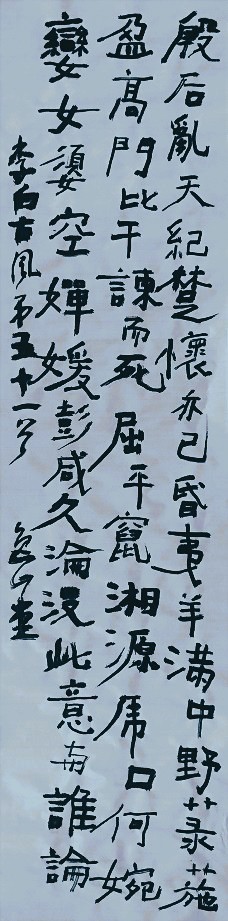 殷后亂天紀楚懷亦已昏夷羊滿中野菉葹
盈高門比干諫而死屈平竄湘源虎口何婉
孌女嬃空嬋媛彭咸久淪沒此意与誰論
李白古風第五十一首